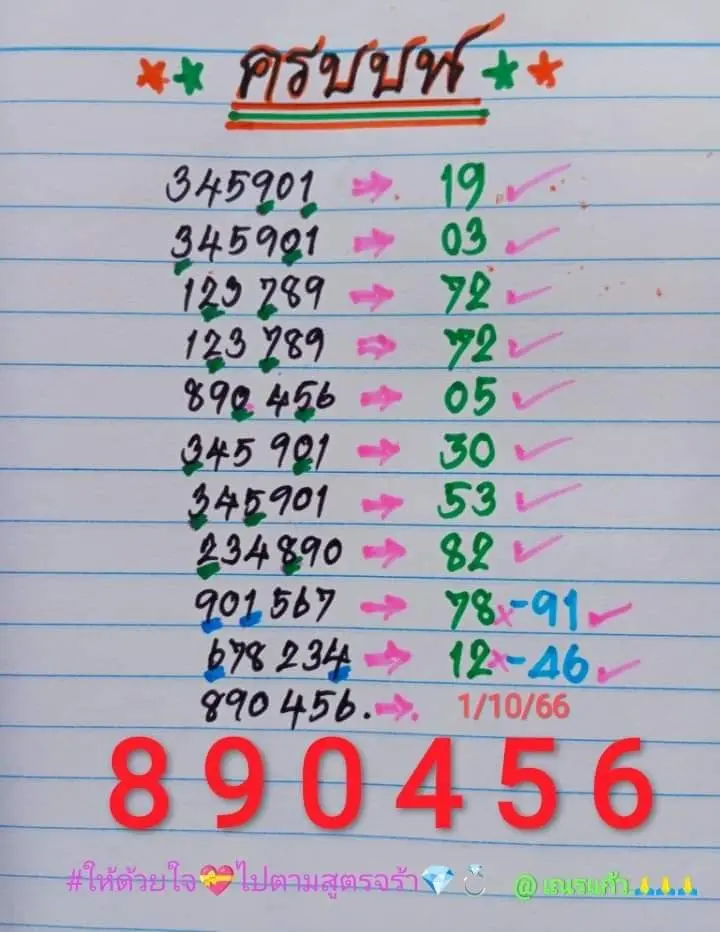 ครบบน
345901 → 19 ✓
345901 → 03 ✓
123 789 → 72 ✓
123 789 → 72 ✓
890 456 → 05 ✓
345 901 → 30 ✓
345901 → 53 ✓
234890 → 82 ✓
901567 → 78x-91 ✓
678 234 → 12x-46 ✓
890 456. → 1/10/66
890456
#ให้ด้วยใจ💝ไปตามสูตรจร้า💎💍 @เณรแก้ว🙏🙏🙏